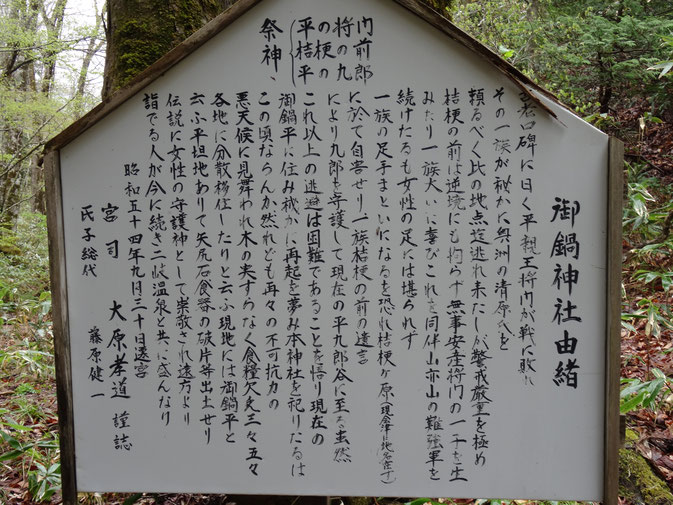 御鍋神社由緒
老口碑に曰く平親王将門が戦に敗れ
その一族が秘かに奥州の清原氏を
頼るべく此の地点迄逃れ来たしが警戒厳重を極め
桔梗の前は逆境にも拘らず無事安産将門の一子を生
みたり一族大いに喜びこれを同伴山亦山の難強軍を
続けたるも女性の足には堪られず
一族の足手まといになるを恐れ桔梗ヶ原(現会津に地名在す)
に於て自害せり一族桔梗の前の遺言
により九郎を守護して現在の平九郎谷に至る虽然
これ以上の逃避は困難であることを悟り現在の
御鍋平に住み秘かに再起を夢み本神社を祀りたるは
この頃ならんか然れども再々の不可抗力の
悪天候に見舞われ木の実すらなく食糧欠乏三々五々
各地に分散移住したりと云ふ現地には御鍋平と
云ふ平坦地ありて矢尻石食器の破片等出土せり
伝説に女性の守護神として崇敬され遠方より
詣でる人が今に続き二岐温泉と共に盛んなり
昭和五十四年九月三十日遷宮
宮司 大原孝道 謹誌
氏子総代 藤原健一
祭神、
平将門
桔梗の前
平九郎